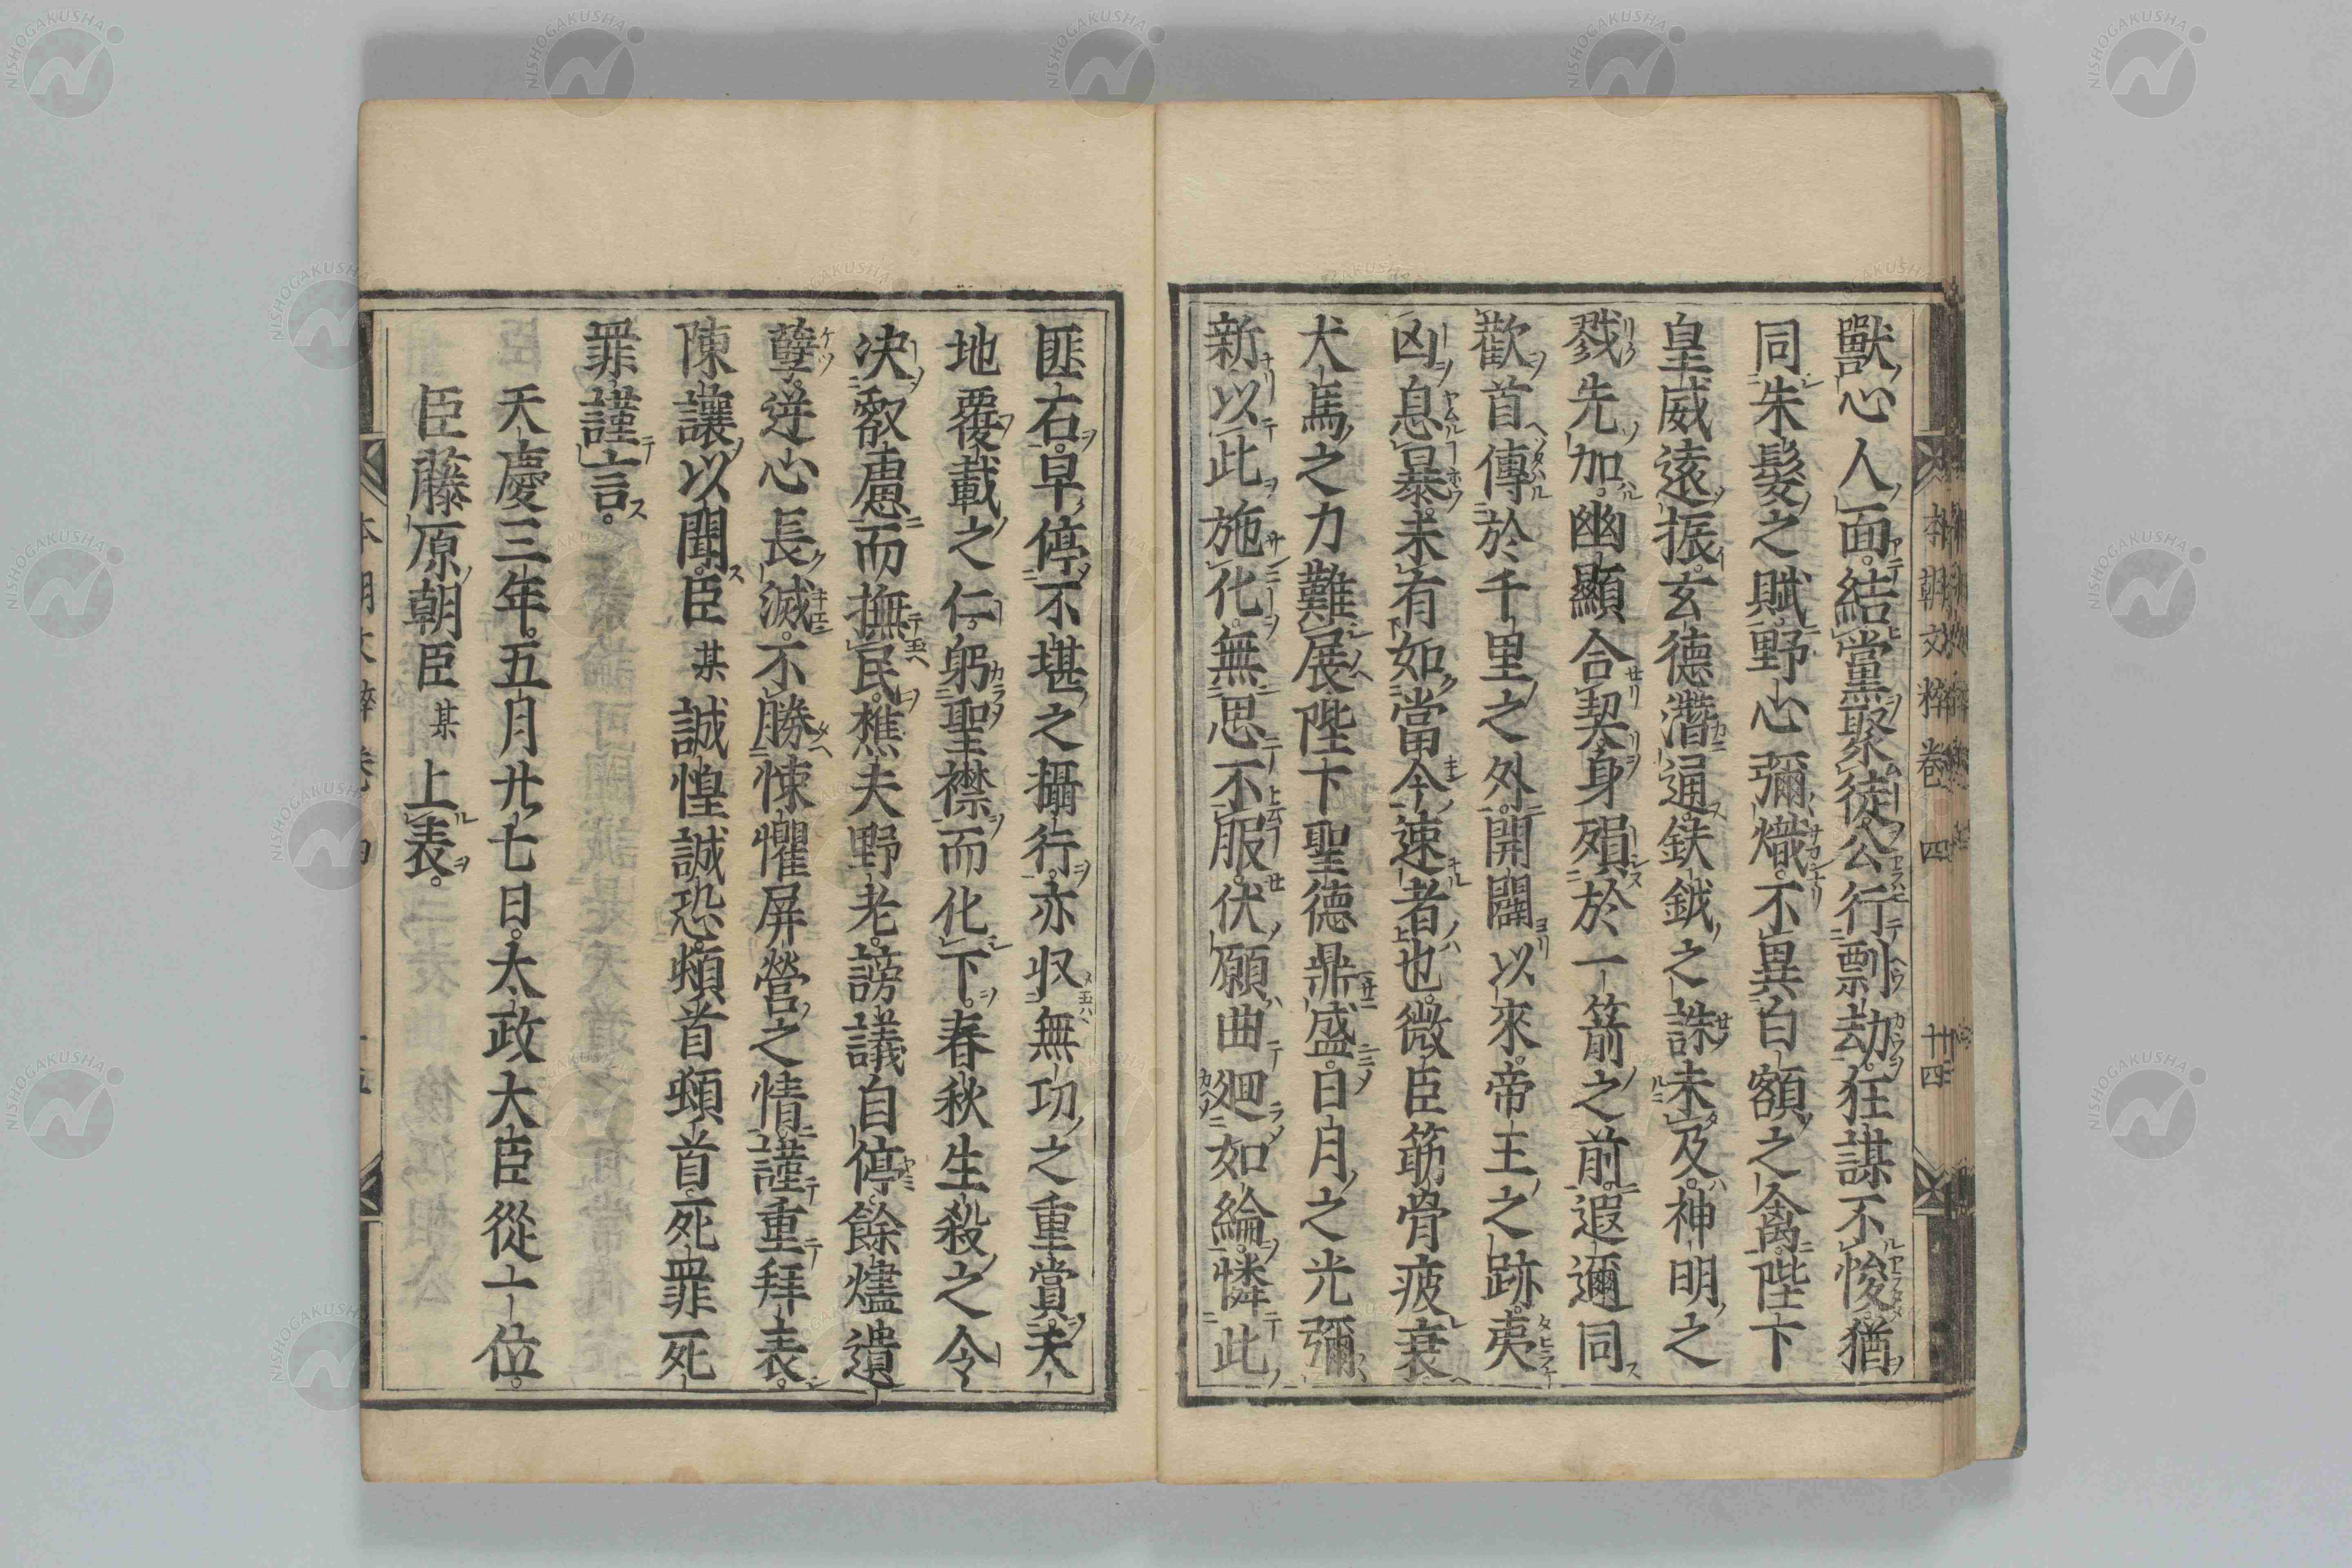 獸心人面。結黨聚徒。公行剽劫。狂謀不悛。猶
同朱髮之賦。野心彌熾。不異白額之禽。陛下
皇威遠振。玄德潛通。鈇鉞之誅未及。神明之
戮先加。幽顯合契。身殞於一箭之前。遐邇同
歡。首傳於千里之外。開闢以來。帝王之跡。夷
凶息暴。未有如當今速者也。微臣筋骨疲衰
犬馬之力難展。陛下聖德鼎盛。日月之光彌
新。以此施化。無思不服。伏願曲廻如綸。憐此
匪石。早停不堪之攝行。亦収無功之重賞。夫
地覆載之仁。躬聖襟而化下。春秋生殺之令
决叡慮而撫民。樵夫野老。謗議自停。餘燼遺
孽。逆心長滅。不勝悚懼屏營之情。謹重拜表。
陳讓以聞。臣某誠惶誠恐。頓首頓首。死罪死
罪。謹言。
天慶三年。五月廿七日。太政大臣從一位。
臣藤原朝臣某上表。
本朝文粹卷四 廿四
NISHOGAKUSHA